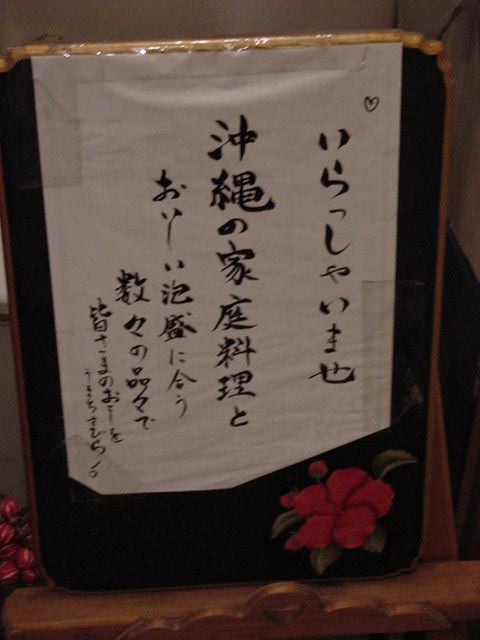 いらっしゃいませ
沖縄の家庭料理と
おいしい泡盛に合う
数々の品々で
皆さまのおこしを
うまちさびら